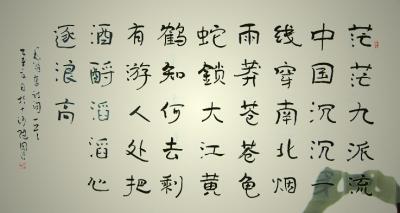 茫茫九派流
中国沉沉一
綫穿南北烟
雨莽苍苍龟
蛇鎖大江黄
鹤知何去剩
有游人处把
酒酹滔滔心
逐浪高